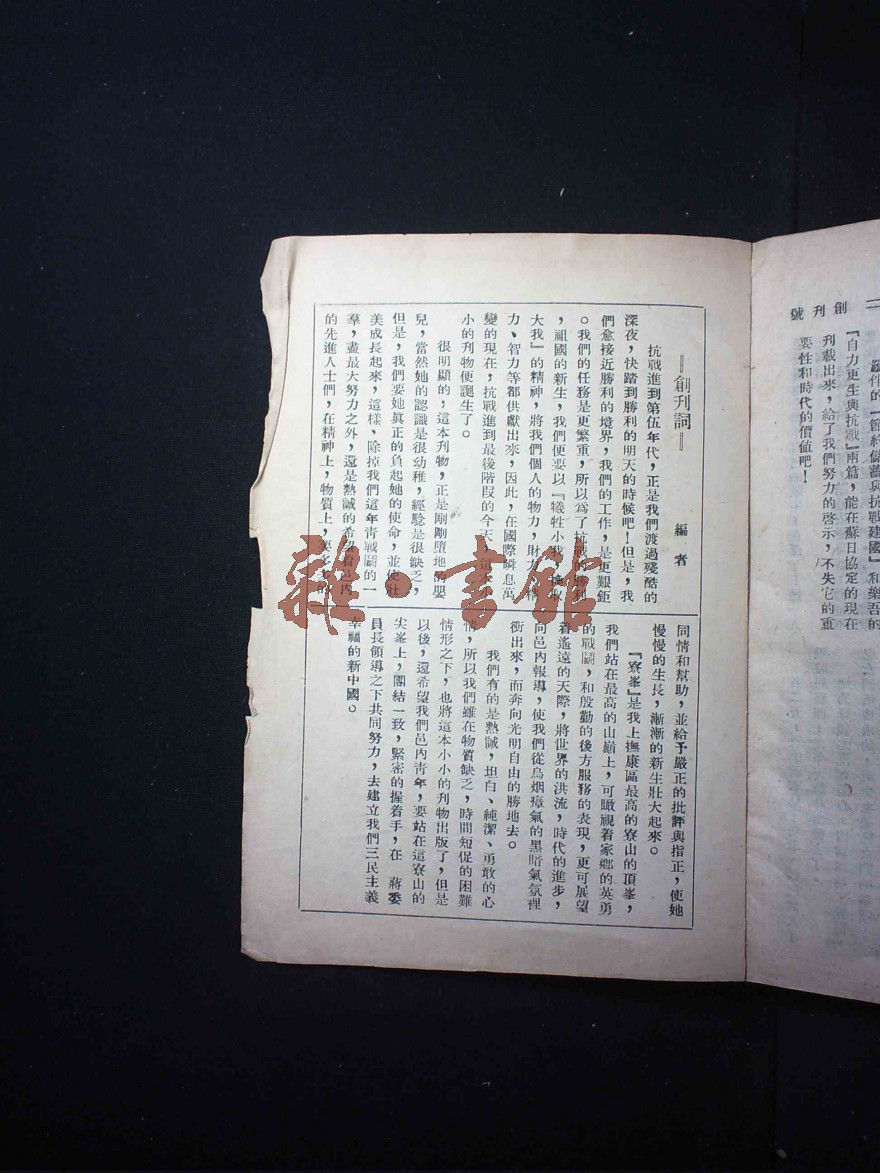 創刊號
『自力更生與抗戰』兩篇，能在蘇日協定的現在
刊載出來，給了我們努力的啓示，不失它的重
要性和時代的價值吧！
＝創刊詞＝
編者
抗戰進到第伍年代，正是我們渡過殘酷的
深夜，快踏到勝利的明天的時候吧！但是，我
們愈接近勝利的境界，我們的工作，是更艱鉅
。我們的任務是更繁重，所以爲了抗戰的勝利
，祖國的新生，我們便要以『犧牲小我，
大我』的精神，將我們個人的物力，財力，精
力、智力等都供獻出來，因此，在國際瞬息萬
變的現在，抗戰進到最後階段的今天，這本小
小的刊物便誕生了。
很明顯的，這本刊物，正是剛剛墮地的嬰
兒，當然她的認識是很幼稚，經驗是很缺乏，
但是，我們要她眞正的負起她的使命，並使壯
美成長起來，這樣、除掉我們這年靑戰鬪的一
羣，盡最大努力之外，還是熱誠的希望着邑內
的先進人士們，在精神上，物質上，要多多的
同情和幫助，並給予嚴正的批評與指正，使她
慢慢的生長，漸漸的新生壯大起來。
『寮峯』是我上撫康區最高的寮山的頂峯，
我們站在最高的山嶺上，可瞰視着家鄉的英勇
的戰鬪，和殷勤的後方服務的表現，更可展望
着遙遠的天際，將世界的洪流，時代的進步，
向邑內報導，使我們從烏烟瘴氣的黑暗氣氛裡
衝出來，而奔向光明自由的勝地去。
我們有的是熱誠，坦白、純潔、勇敢的心
情，所以我們雖在物質缺乏，時間短促的困難
情形之下，也將這本小小的刊物出版了，但是
以後，還希望我們邑內靑年，要站在這寮山的
尖峯上，團結一致，緊密的握着手，在　蔣委
員長領導之下共同努力，去建立我們三民主義
幸福的新中國。
雜·書館